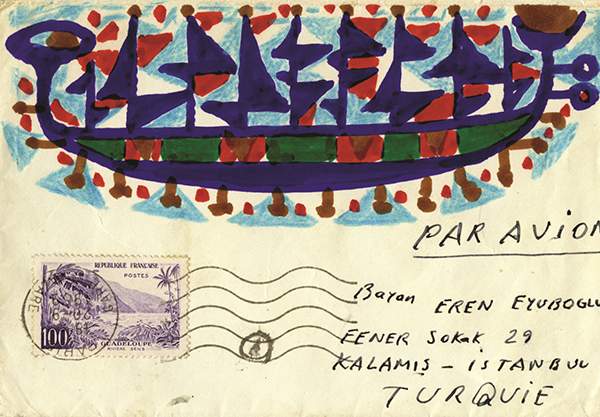 PAR AVION
REPUBLIQUE FRANÇAISE
POSTES
100F
GUADELOUPE
RIVIÈRE SENS
Bayan EREN EYUBOGLU
FENER Sokak 29
KALAMIŞ - İSTANBUL
TURQUIE